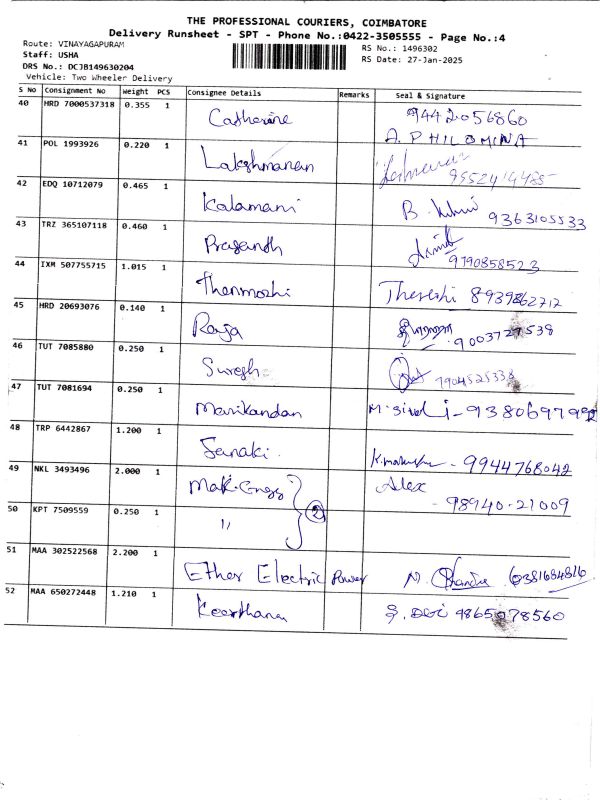 THE PROFESSIONAL COURIERS, COIMBATORE
Delivery Runsheet - SPT - Phone No.:0422-3505555 - Page No.:4
Route: VINAYAGAPURAM
RS No.: 1496302
Staff: USHA
RS Date: 27-Jan-2025
DRS No.: DCJB149630204
Vehicle: Two Wheeler Delivery
S No Consignment No Weight PCS Consignee Details Remarks Seal & Signature
40 HRD 7000537318 0.355 1 Catherine 9442056860
A. PHILOMINA
41 POL 1993926 0.220 1 Lakshmanan
42 EDQ 10712079 0.465 1 Kalamani B. 9363105533
43 TRZ 365107118 0.460 1 Prasanth 9790858523
44 IXM 507755715 1.015 1 Thenmozhi 8939862712
45 HRD 20693076 0.140 1 Raja 9003727538
46 TUT 7085880 0.250 1 Suresh 7904525338
47 TUT 7081694 0.250 1 Manikandan
48 TRP 6442867 1.200 1 Janaki. 9944768042
49 NKL 3493496 2.000 1 Mak. Engg Alex
- 98940.21009
50 KPT 7509559 0.250 1 〃 2
51 MAA 302522568 2.200 1 Ether Electric Power N.
52 MAA 650272448 1.210 1 Keerthana 9865078560